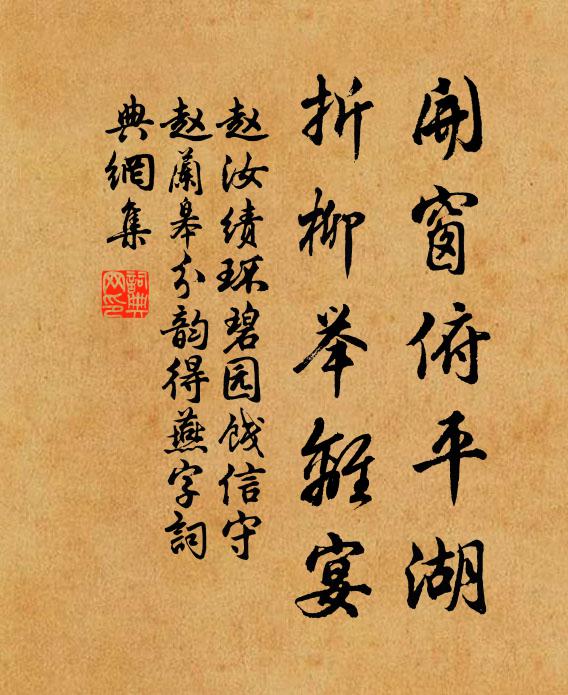 開窗俯平湖
折柳举離宴
赵汝绩环碧园饯信守
赵蘭皋分韵得燕字詞
典網集
詞典网印